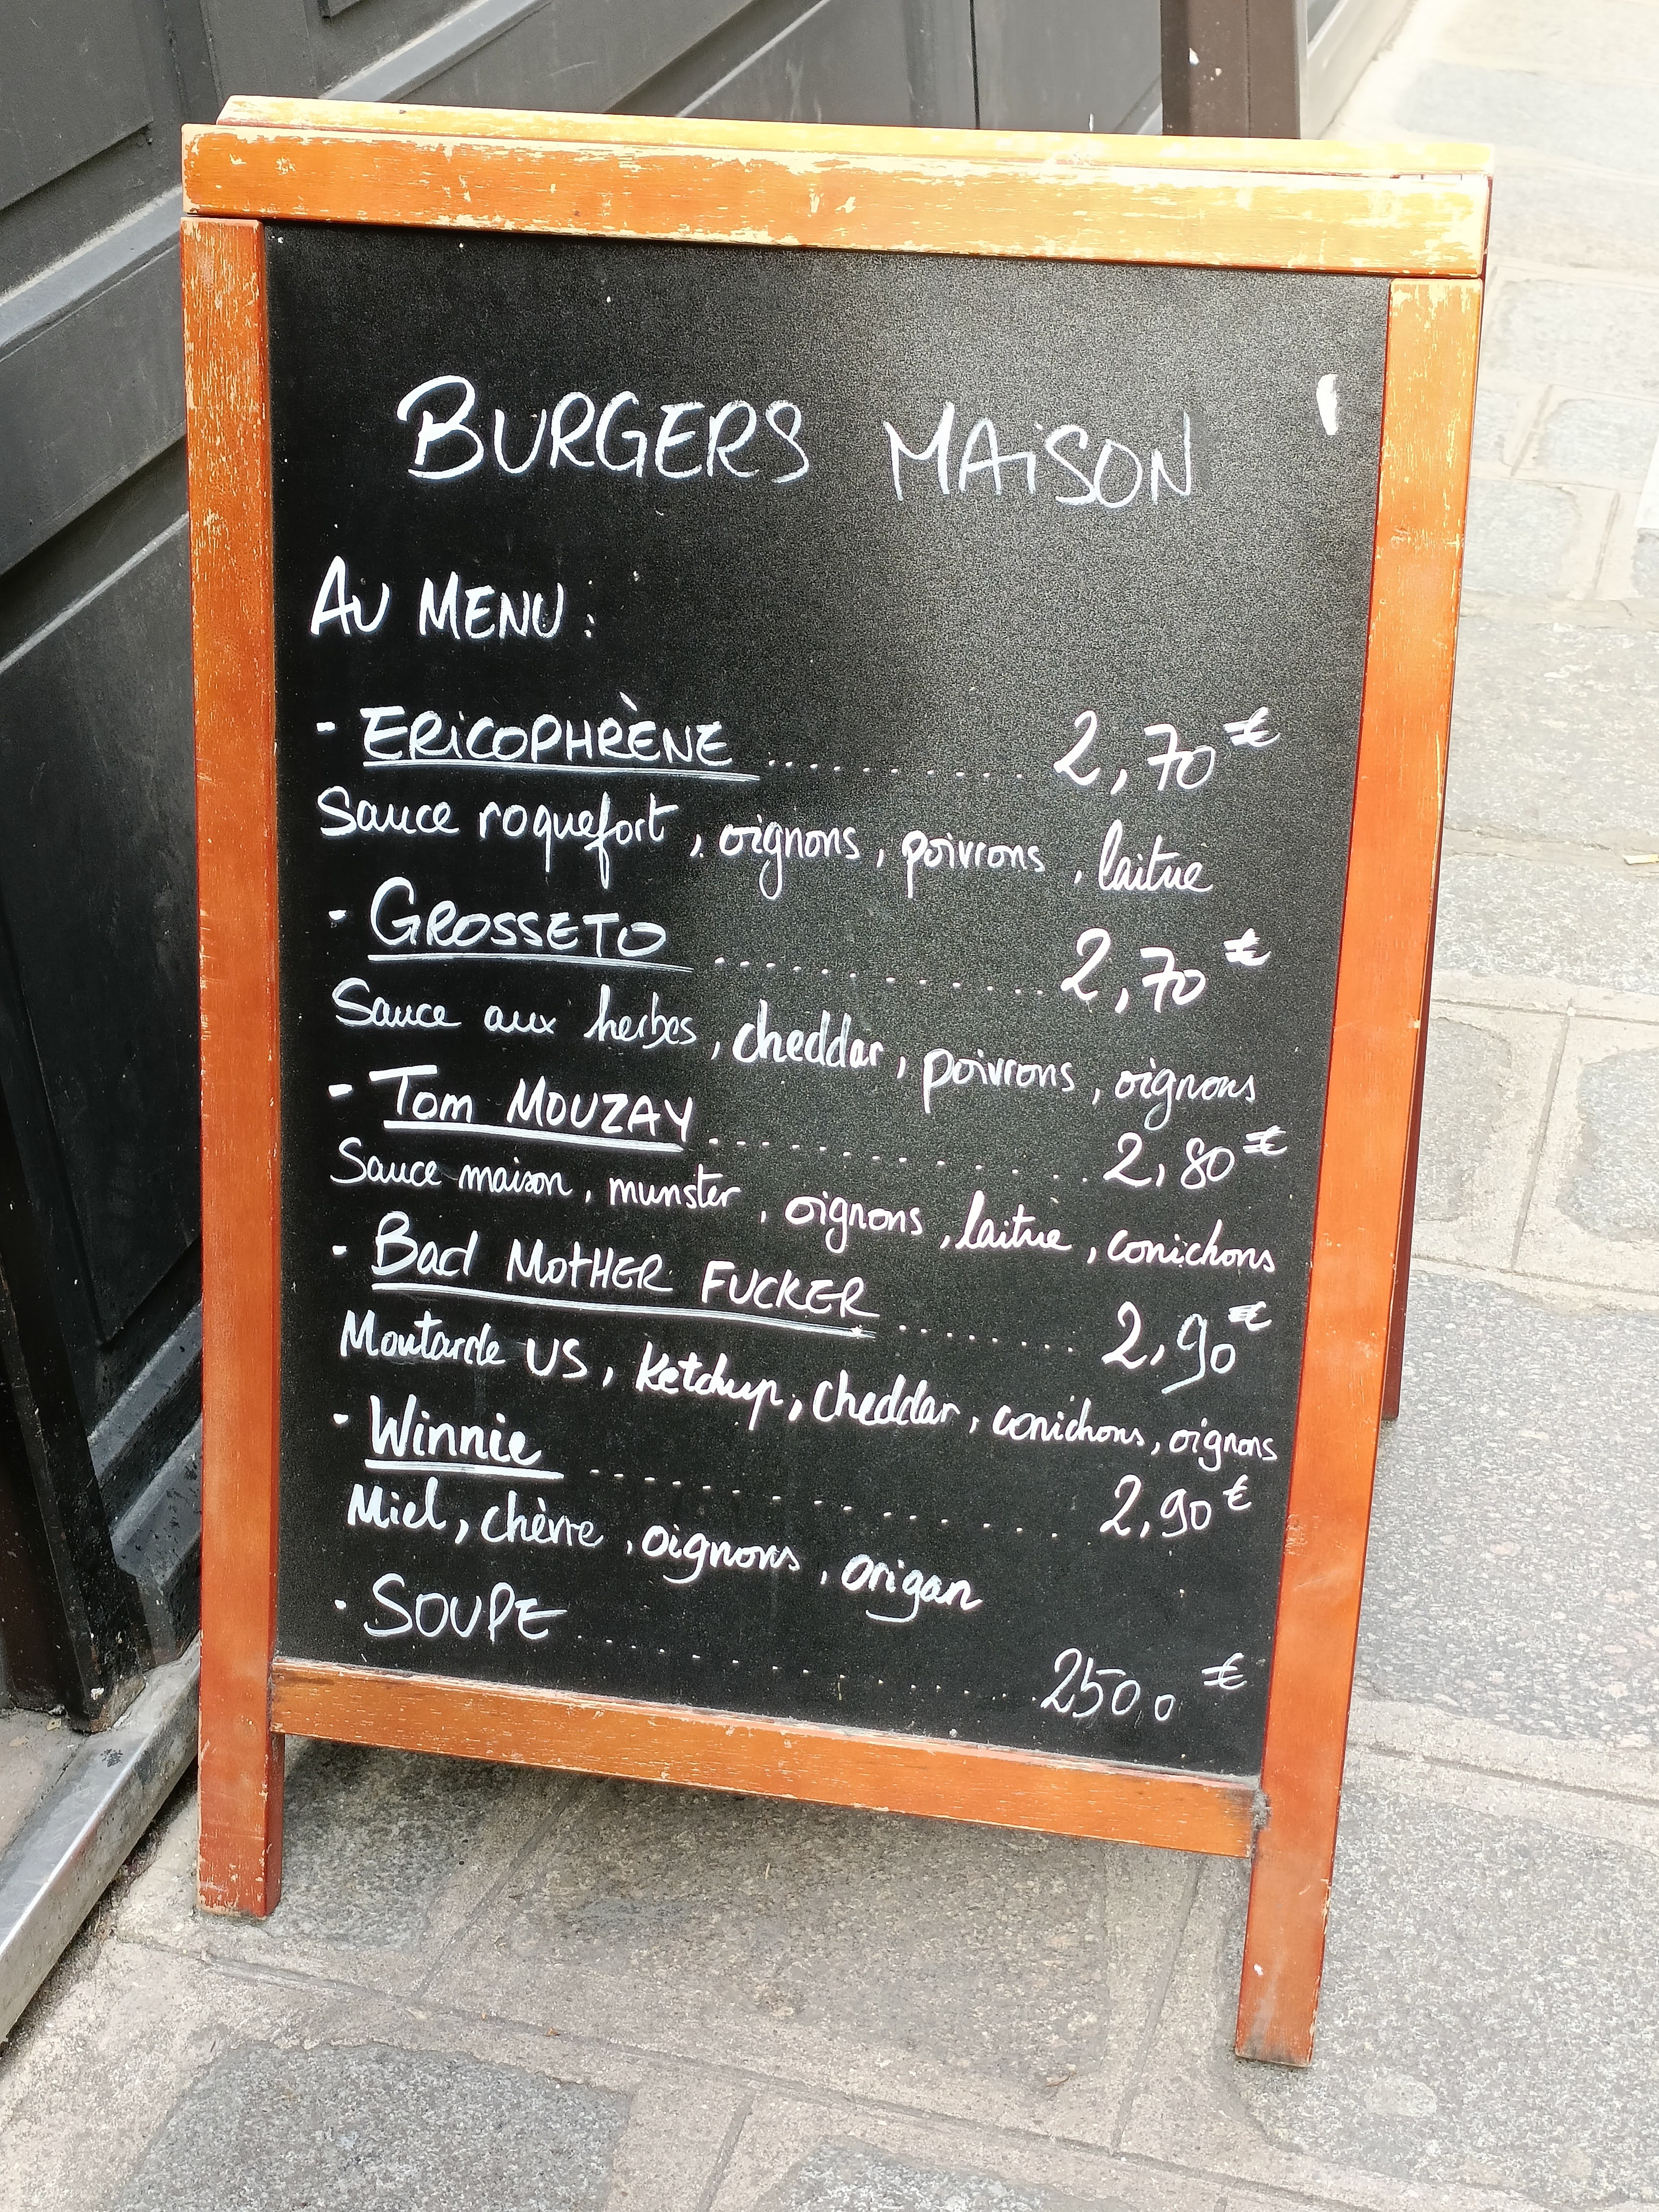 BURGERS MAISON
AU MENU :
- ERICOPHRÈNE .......... 2,70 €
Sauce roquefort, oignons, poivrons, laitue
- GROSSETO .......... 2,70 €
Sauce aux herbes, cheddar, poivrons, oignons
- TOM MOUZAY .......... 2,80 €
Sauce maison, munster, oignons, laitue, cornichons
- BAD MOTHER FUCKER ...... 2,90 €
Moutarde US, ketchup, cheddar, cornichons, oignons
- Winnie .......... 2,90 €
Miel, chèvre, oignons, origan
- SOUPE .......... 2500 €